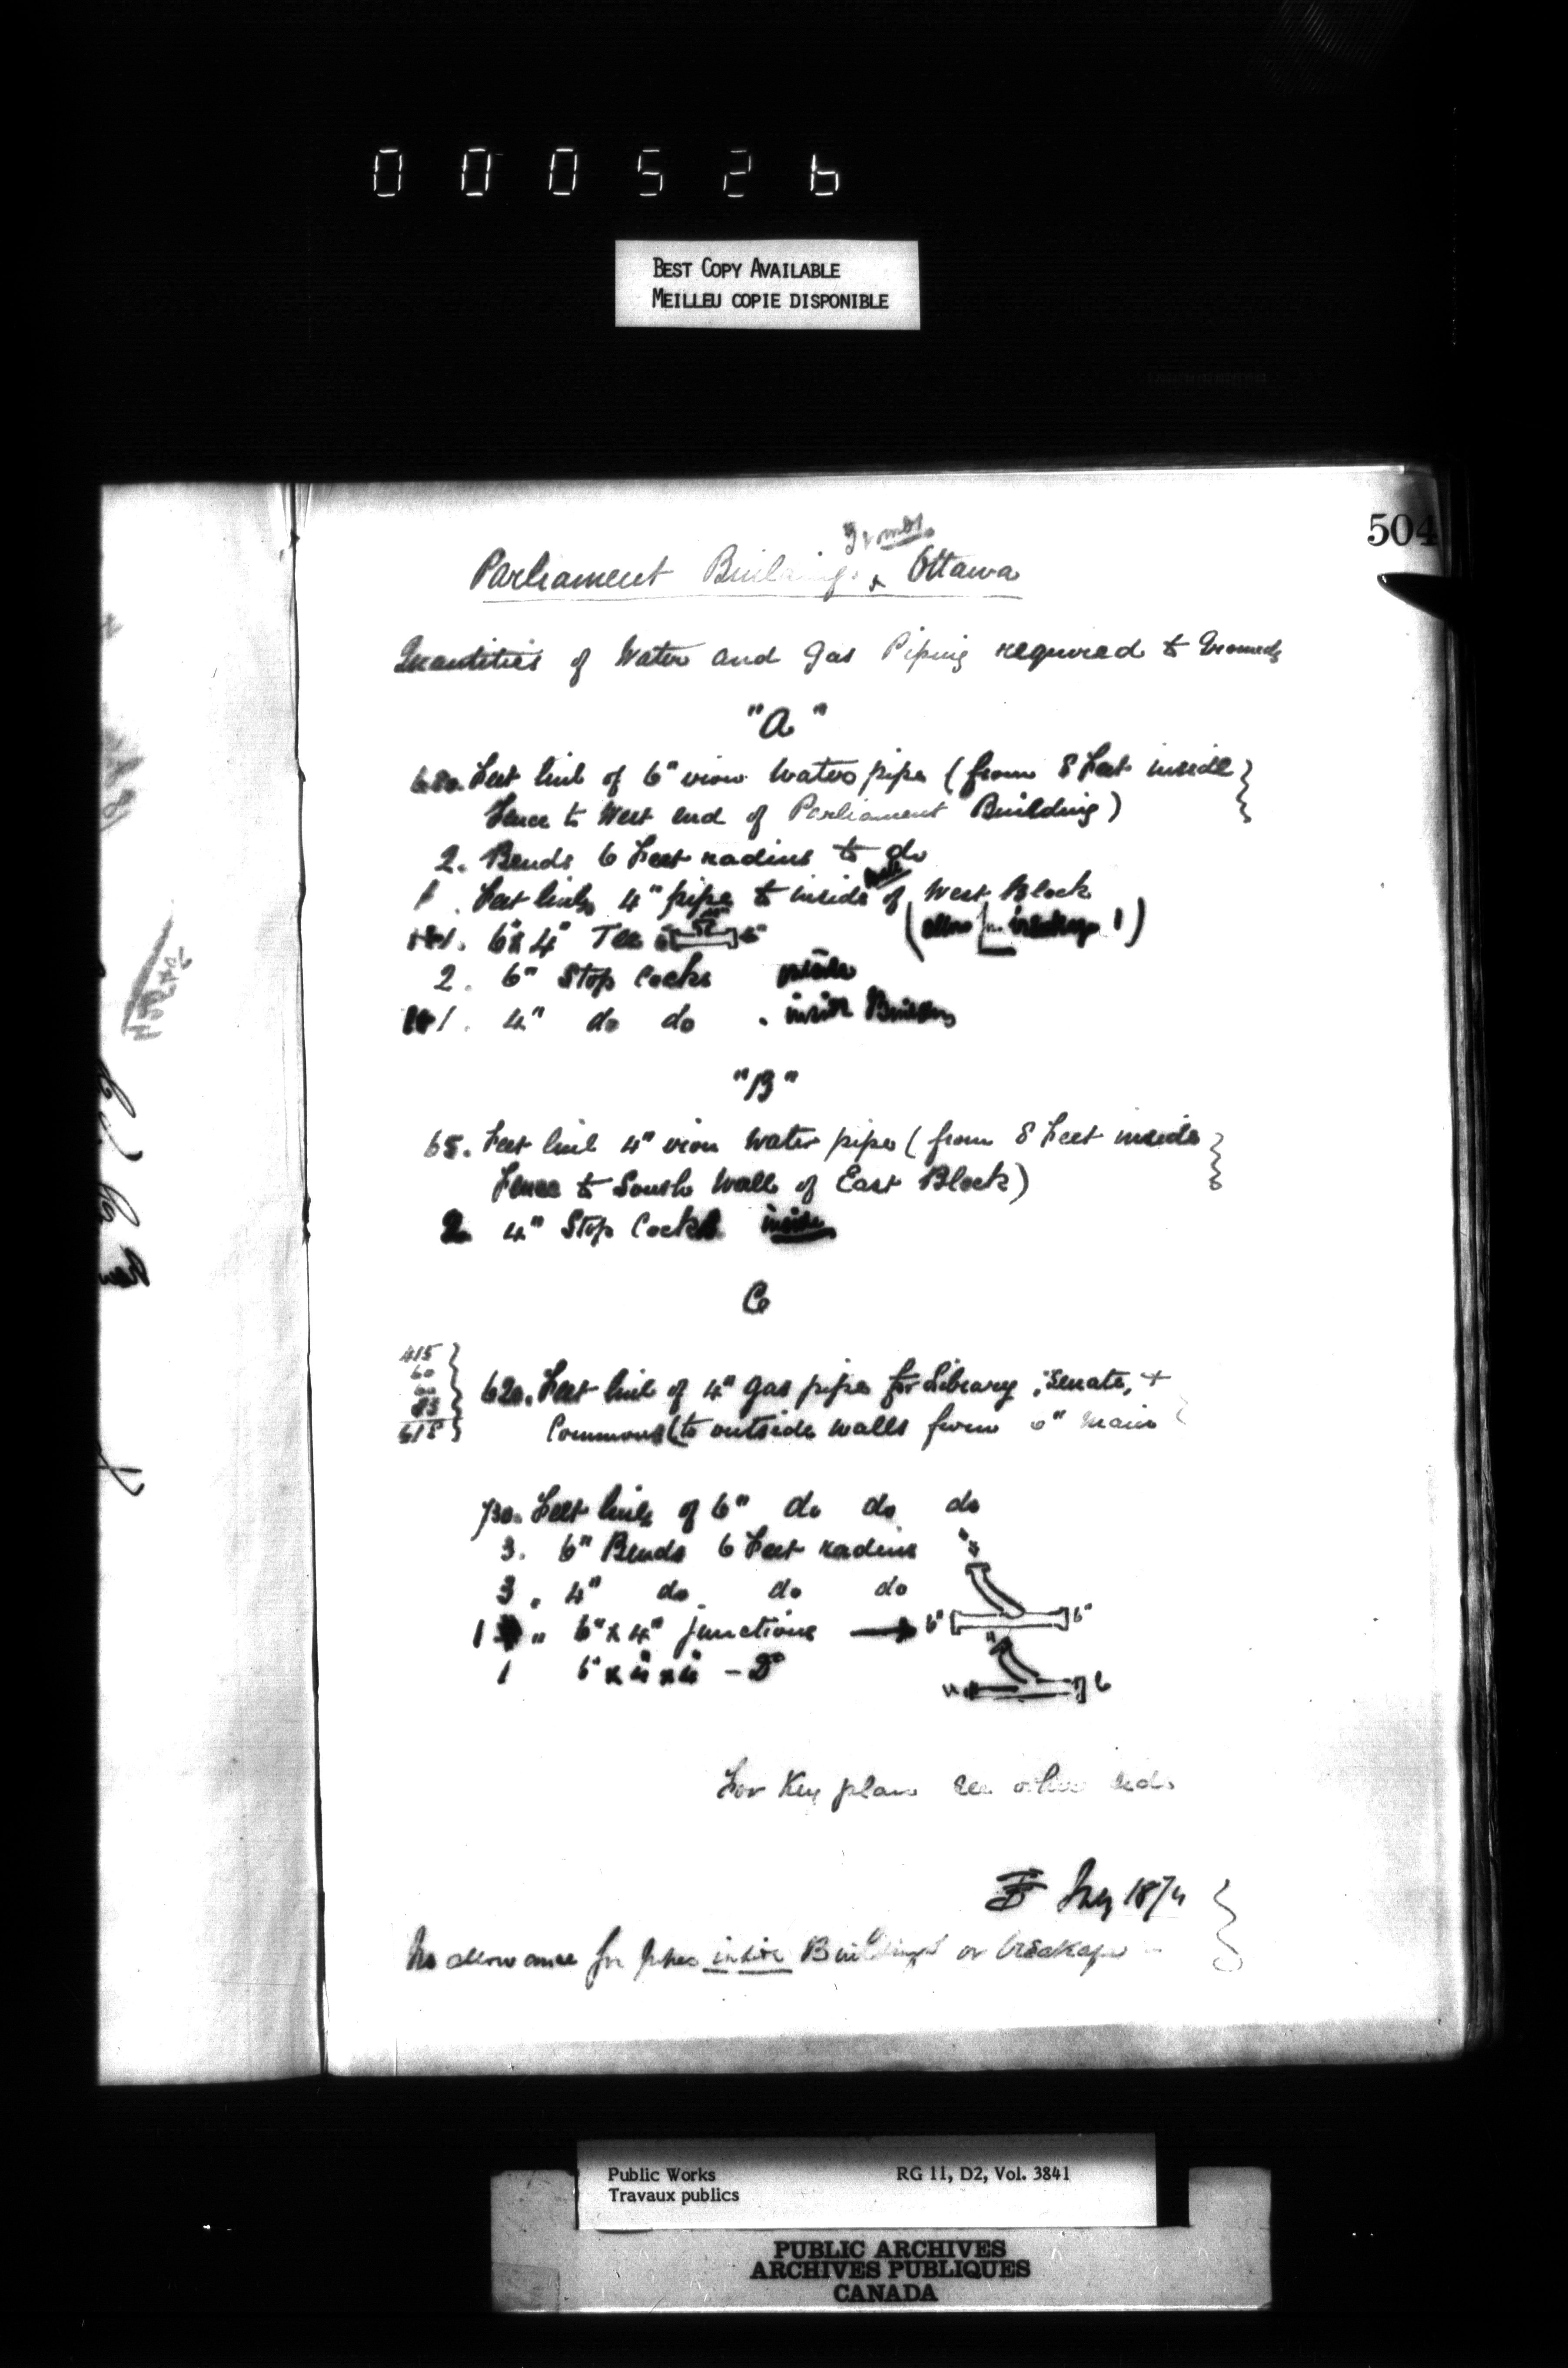 000526
BEST COPY AVAILABLE
MEILLEU COPIE DISPONIBLE
504
Grounds
Parliament Buildings, Ottawa
Quantities of Water and Gas Piping required to Grounds
"A"
680. Feet linl of 6" iron Water pipe (from 8 Feet inside
Fence to West end of Parliament Building)
2. Bends 6 Feet radius to do
Feet linl 4" pipe to inside of West Block
6" x 4" Tee
2. 6" Stop Cocks outside
1. 4" do do . inside Building
"B"
65. Feet linl 4" iron Water pipe (from 8 Feet inside
Fence to South Wall of East Block)
2 4" Stop Cocks inside
C
415
60
60
83
618
620. Feet linl of 4" Gas pipe for Library, Senate, +
Commons (to outside walls from 6" Main
730. Feet linl of 6" do do do
3. 6" Bends 6 Feet radius
3. 4" do do do
1 " 6" x 4" junctions 6" 6"
1 6" x 4" x 4" - Do 6
For Key plan see other side
July 1874
No allowance for pipes inside Buildings or breakage
Public Works RG 11, D2, Vol. 3841
Travaux publics
PUBLIC ARCHIVES
ARCHIVES PUBLIQUES
CANADA